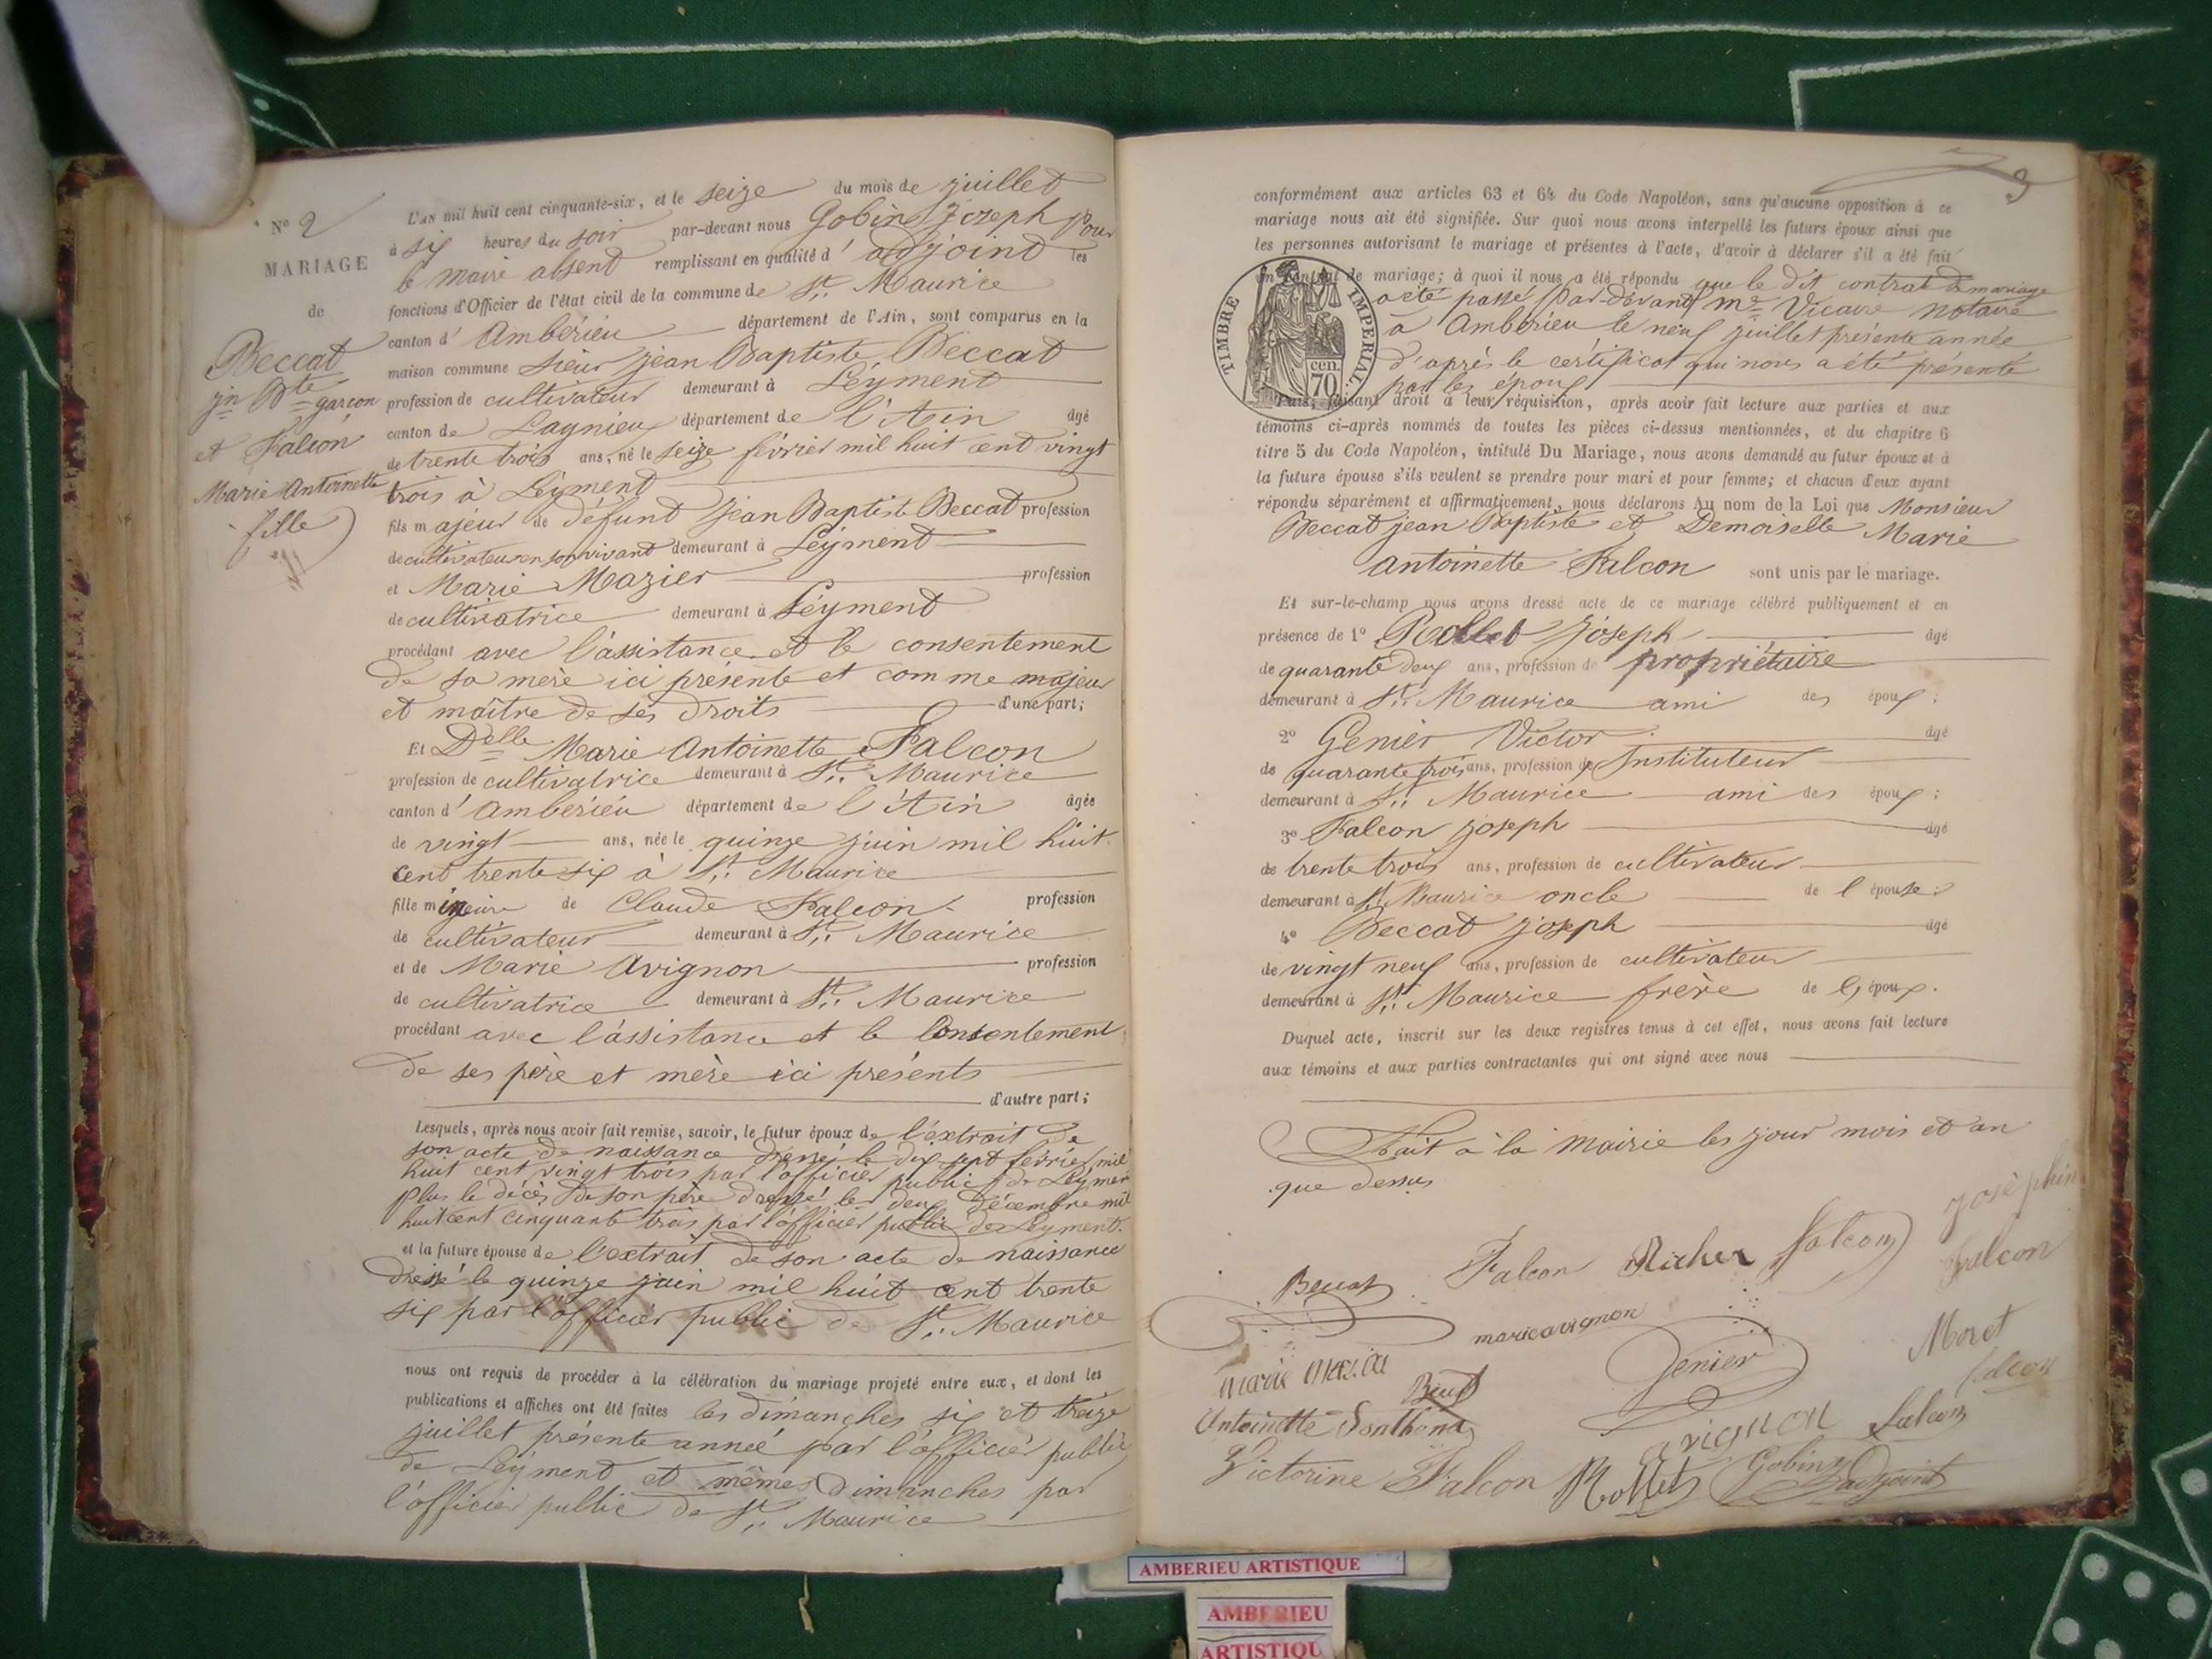 N° 2
MARIAGE
de
Beccat
Jn Bte garçon
et Falcon
Marie Antoinette
fille
L'AN mil huit cent cinquante-six, et le seize du mois de juillet
à six heures du soir par-devant nous Gobin Joseph Pour
le maire absent remplissant en qualité d'adjoint les
fonctions d'Officier de l'état civil de la commune de St. Maurice
canton d'Ambérieu département de l'Ain, sont comparus en la
maison commune sieur jean Baptiste Beccat
profession de cultivateur demeurant à Léyment
canton de Lagnieu département de l'Ain âgé
de trente trois ans, né le seize février mil huit cent vingt
trois à Léyment
fils majeur de défunt Jean Baptiste Beccat profession
de cultivateur en son vivant demeurant à Léyment
et Marie Mazier profession
de cultivatrice demeurant à Léyment
procédant avec l'assistance et le consentement
de sa mère ici présente et comme majeur
et maître de ses droits d'une part;
Et Delle Marie Antoinette Falcon
profession de cultivatrice demeurant à St. Maurice
canton d'Ambérieu département de l'Ain âgée
de vingt ans, née le quinze juin mil huit
cent trente six à St. Maurice
fille mineure de Claude Falcon profession
de cultivateur demeurant à St. Maurice
et de Marie Avignon profession
de cultivatrice demeurant à St. Maurice
procédant avec l'assistance et le Consentement
de ses père et mère ici présents
d'autre part;
Lesquels, après nous avoir fait remise, savoir, le futur époux de l'éxtrait de
son acte de naissance dressé le dix sept février mil
huit cent vingt trois par l'officier public de Léyment
Plus le décès de son père dressé le deux décembre mil
huit cent cinquante trois par l'officier public de Leyment.
et la future épouse de l'extrait de son acte de naissance
dressé le quinze juin mil huit cent trente
six par l'officier public de St. Maurice
nous ont requis de procéder à la célébration du mariage projeté entre eux, et dont les
publications et affiches ont été faites les dimanches six et treize
juillet présente année par l'officier public
de Léyment et mêmes Dimanches par
l'officier public de St. Maurice
3
conformément aux articles 63 et 64 du Code Napoléon, sans qu'aucune opposition à ce
mariage nous ait été signifiée. Sur quoi nous avons interpellé les futurs époux ainsi que
les personnes autorisant le mariage et présentes à l'acte, d'avoir à déclarer s'il a été fait
un contrat de mariage; à quoi il nous a été répondu que le dit contrat de mariage
a été passé par-devant me Vicaire notaire
à Ambérieu le neuf juillet présente année
d'après le certificat qui nous a été présenté
par les époux
TIMBRE IMPERIAL
70 cen.
Puis, faisant droit à leur réquisition, après avoir fait lecture aux parties et aux
témoins ci-après nommés de toutes les pièces ci-dessus mentionnées, et du chapitre 6
titre 5 du Code Napoléon, intitulé Du Mariage, nous avons demandé au futur époux et à
la future épouse s'ils veulent se prendre pour mari et pour femme; et chacun d'eux ayant
répondu séparément et affirmativement, nous déclarons Au nom de la Loi que Monsieur
Beccat jean Baptiste et Demoiselle Marie
Antoinette Falcon sont unis par le mariage.
Et sur-le-champ nous avons dressé acte de ce mariage célébré publiquement et en
présence de 1° Rollet Joseph âgé
de quarante deux ans, profession de propriétaire
demeurant à St. Maurice ami des époux;
2° Genier Victor âgé
de quarante trois ans, profession de Instituteur
demeurant à St. Maurice ami des époux;
3° Falcon joseph âgé
de trente trois ans, profession de cultivateur
demeurant à St. Maurice oncle de l'épouse;
4° Beccat joseph âgé
de vingt neuf ans, profession de cultivateur
demeurant à St. Maurice frère de l'époux.
Duquel acte, inscrit sur les deux registres tenus à cet effet, nous avons fait lecture
aux témoins et aux parties contractantes qui ont signé avec nous
Fait à la Mairie les jour mois et an
que dessus
Beccat Falcon Richer falcon Joséphine
Falcon
marieavignon
Genier
Moret
falcon
Marie
Antoinette
avignon
falcon
Victorine Falcon Rollet Gobin adjoint
AMBERIEU ARTISTIQUE
AMBERIEU
ARTISTIQU